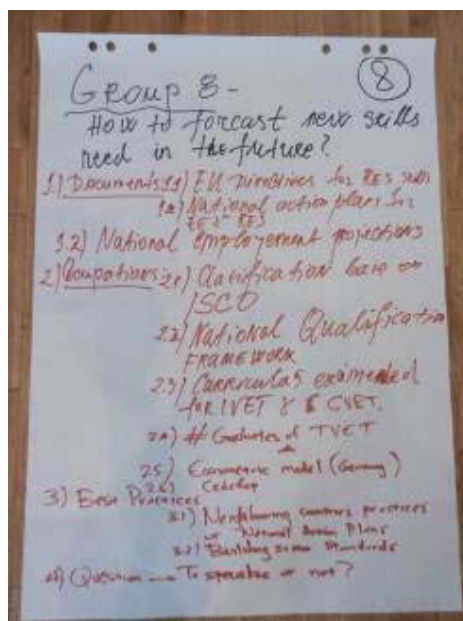 8
Group 8 -
How to forcast new skills
need in the future?
1) Documents 1.1) EU Directives for RES skills
National action plans for
EE & RES
1.2) National Employement projections
2) Ocupations 2.1) Clasification base on
ISCO
2.2) National Qualification
FRAMEWORK
2.3) Curriculas examented
for IVET & CVET.
# Graduates of TVET
2.5) Econometric model (Germany)
2.6) Cedefop
3) Best Practices
3.1) Neighbouring countries practices
Action Plans
3.2) Building Standards
4) Question To specialise or not?